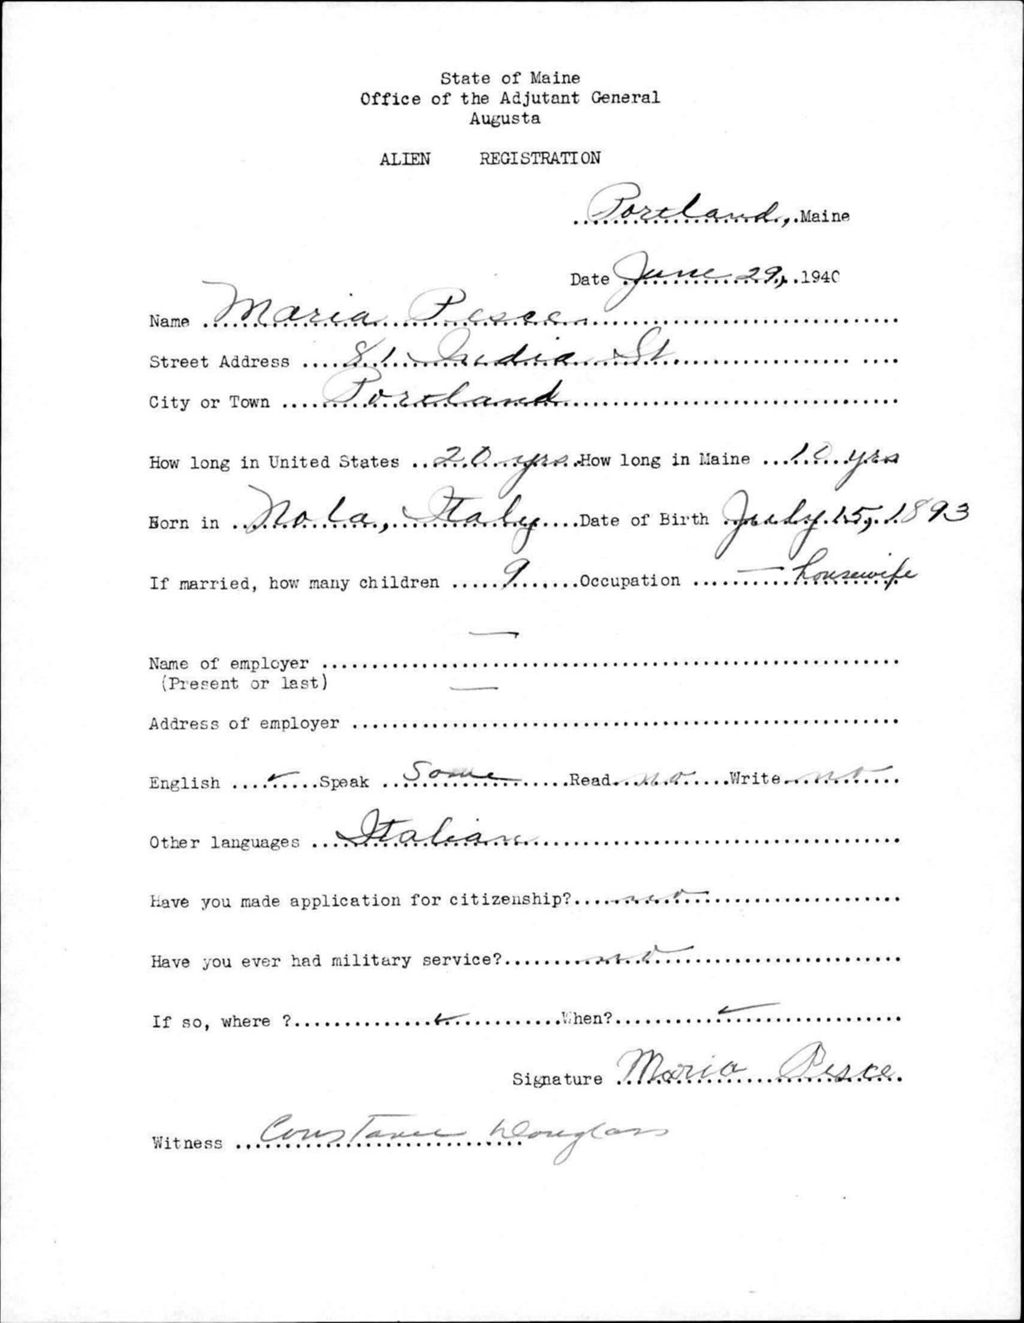 State of Maine
Office of the Adjutant General
Augusta
ALIEN REGISTRATION
Portland, Maine
Date June 29, 1940
Name Maria Pesce
Street Address 81 India St
City or Town Portland
How long in United States 20 yrs. How long in Maine 10 yrs
Born in Nola, Italy Date of Birth July 15, 1893
If married, how many children 9 Occupation — housewife
—
Name of employer
(Present or last)
—
Address of employer
English ✓ Speak Some Read no Write no
Other languages Italian
Have you made application for citizenship? no
Have you ever had military service? no
If so, where ? ✓ When? ✓
Signature Maria Pesce
Witness Constance Douglass